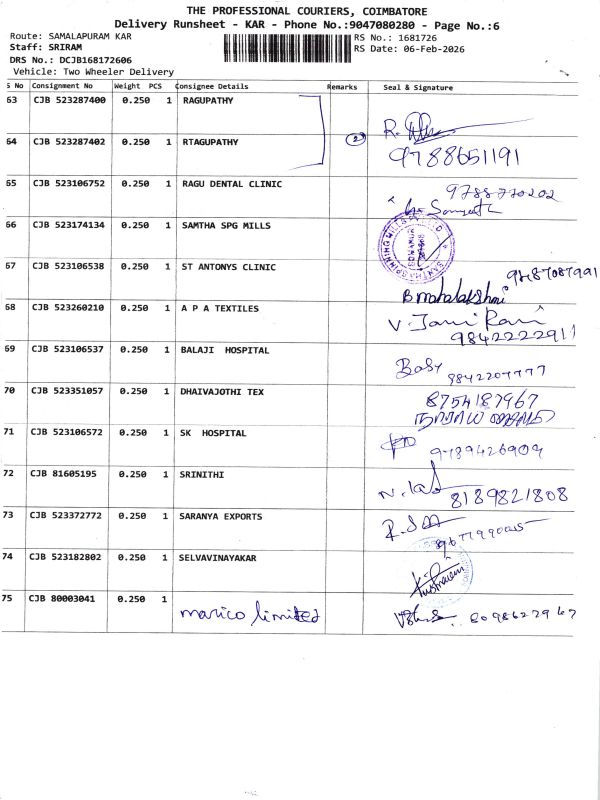 THE PROFESSIONAL COURIERS, COIMBATORE
Delivery Runsheet - KAR - Phone No.:9047080280 - Page No.:6
Route: SAMALAPURAM KAR
RS No.: 1681726
Staff: SRIRAM
RS Date: 06-Feb-2026
DRS No.: DCJB168172606
Vehicle: Two Wheeler Delivery
S No Consignment No Weight PCS Consignee Details Remarks Seal & Signature
63 CJB 523287400 0.250 1 RAGUPATHY
64 CJB 523287402 0.250 1 RTAGUPATHY 2 9788651191
65 CJB 523106752 0.250 1 RAGU DENTAL CLINIC 9788770202
66 CJB 523174134 0.250 1 SAMTHA SPG MILLS
67 CJB 523106538 0.250 1 ST ANTONYS CLINIC 9487087991
B mahalakshmi
68 CJB 523260210 0.250 1 A P A TEXTILES V. Jansi Rani
9842222911
69 CJB 523106537 0.250 1 BALAJI HOSPITAL Baby 9842207777
70 CJB 523351057 0.250 1 DHAIVAJOTHI TEX 8754187967
71 CJB 523106572 0.250 1 SK HOSPITAL 9789426909
72 CJB 81605195 0.250 1 SRINITHI 8189821808
73 CJB 523372772 0.250 1 SARANYA EXPORTS
74 CJB 523182802 0.250 1 SELVAVINAYAKAR
75 CJB 80003041 0.250 1 marico limited 8098627967